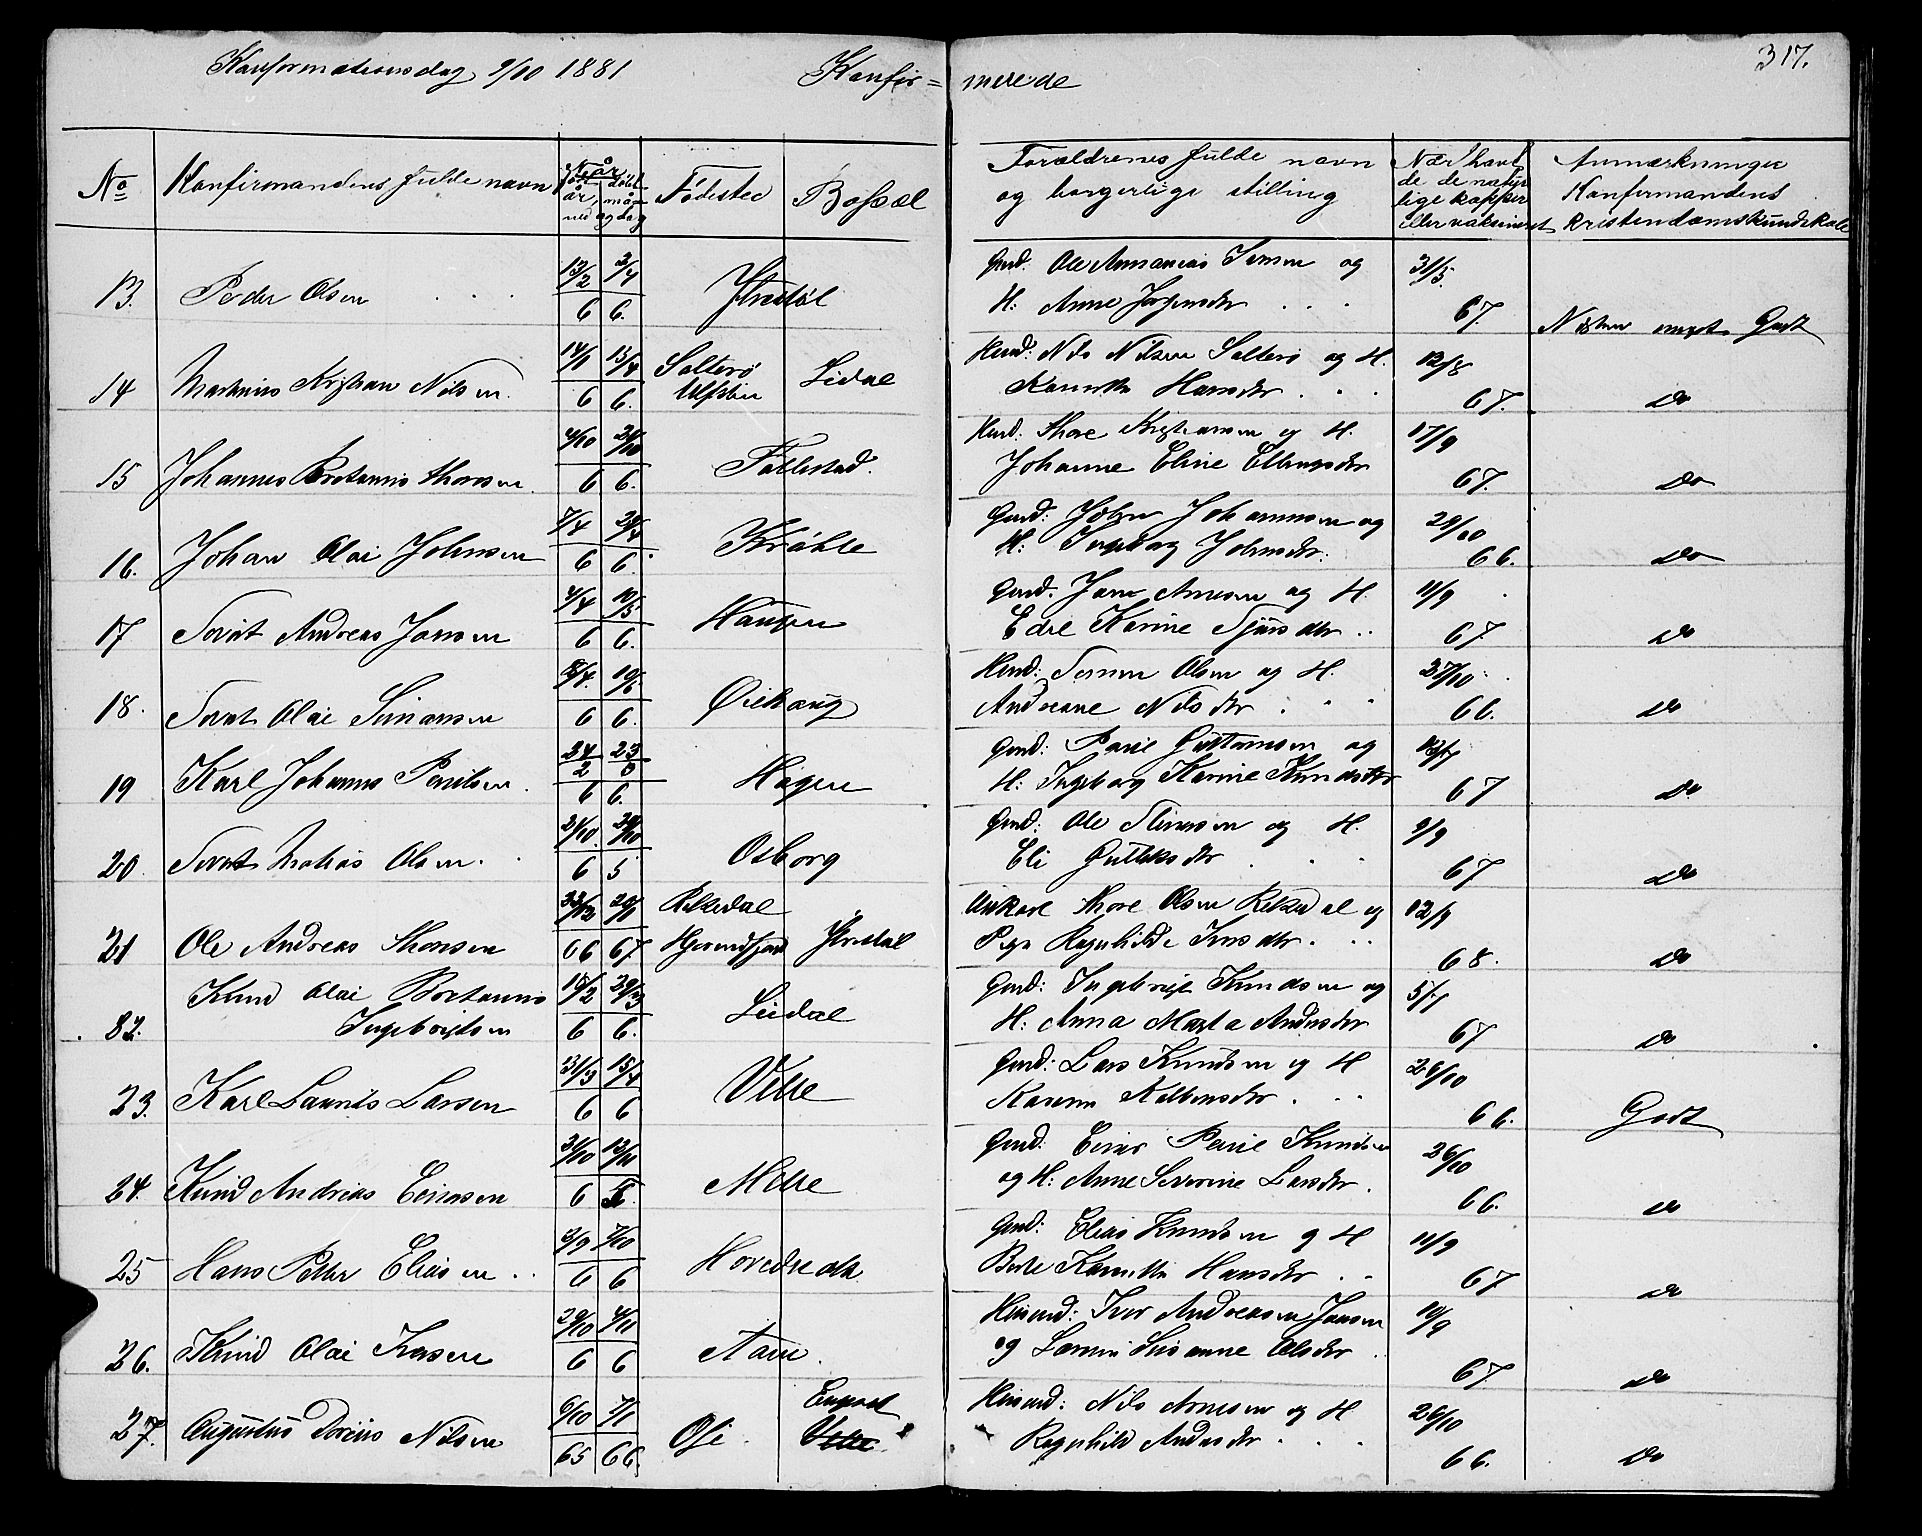 Konformationsdag 9/10 1881 Konfir=
merede 317.
No Konfirmandens fulde navn Når født år, måned og dag døbt Fødested Bosted
Forældrenes fulde navn og borgerlige stilling
Når havt de de naturlige kopper eller vaksineret
Anmærkninger Konfirmandens kristendomskundskab
13. Peder Olsen 13/2 6 2/4 6. Ytrestøl Gmd. Ole Ananias Iversen og
H: Anne Jørgensdtr 31/5 67. Næsten meget Godt
14 Martinus Kristian Nilsen. 14/1 6 13/4 6. Solterø Ulfsten Lidal Husmd: Nils Nilsen Solterø og H.
Hansdtr 12/8 67. Do
15 Johannes Bertanus Thoresen 4/10 6 6. Follestad. Husmd: Thore Kristiansen og H.
Johanne Eline Ellingsdtr 17/9 67. Do
16. Johan Olai Johnsen 7/4 6 6. Kråkle Gmd: John Johannesen og
H: Ingeborg Johnsdtr: 29/10 66. Do
17 Sivert Andreas Jonsen 4/4 6 10/5 6. Haugen Gmd. Jon Arnesen og H.
Edel Karine Sjursdtr 11/9 67 Do
18. Sivert Olai Simonsen 8/4 6 19/5 6. Øiehaug Husmd: Simon Olsen og H.
Andreane Nilsdtr 27/10 66. Do
19 Karl Johannes Paulsen. 24/2 6 6. Hagen Gmd: Paul Guttormsen og
H: Ingeborg Karine Knudsdtr 67 Do
20. Sivert Matias Olsen. 21/10. 6 5 Osborg Gmd: Ole Steinsen og H.
Eli 9/9 67 Do
21 Ole Andreas Thoresen 66 67 Rekkedal Hjørendfjord Ytrestøl Ungkarl Thore Olsen Rekkedal og
Pige Ragnhilde Iversdtr. 12/9 68. Do
82. Knud Olai Bertanus
Ingebrigtsen 18/2 6 6. Leidal Gmd: Ingebrigt Knudsen og
H: Anna Marta Andersdtr 5/7 67 Do
23. Karl Laurits Larsen 31/3 6 15/4 6 Velle Gmd: Lars Knudsen og H
Karen 26/10 66. Godt
24. Knud Andreas Einarsen 21/10 6 Melle Gmd: Einar Paul Knudsen
og H: Anne Severine Larsdtr. 26/10 66. Do
25 Hans Peter Eliassen 3/9 6 7/10 6 Hovdenak Gmd: Elias Knudsen og H
Berte Hansdtr 11/9 67 Do
26. Knud Olai Iversen 29/10 6 4/11 6 Aam. Husmd: Iver Andreasen Jonsen
og Susanne Olsdtr 19/9 67. Do
27. Augustus Nilsen 6/10 65 7/1 66. Ose. Engeset Velle Husmd: Nils Arnesen og H
Ragnhild Andersdtr 26/10 66. Do